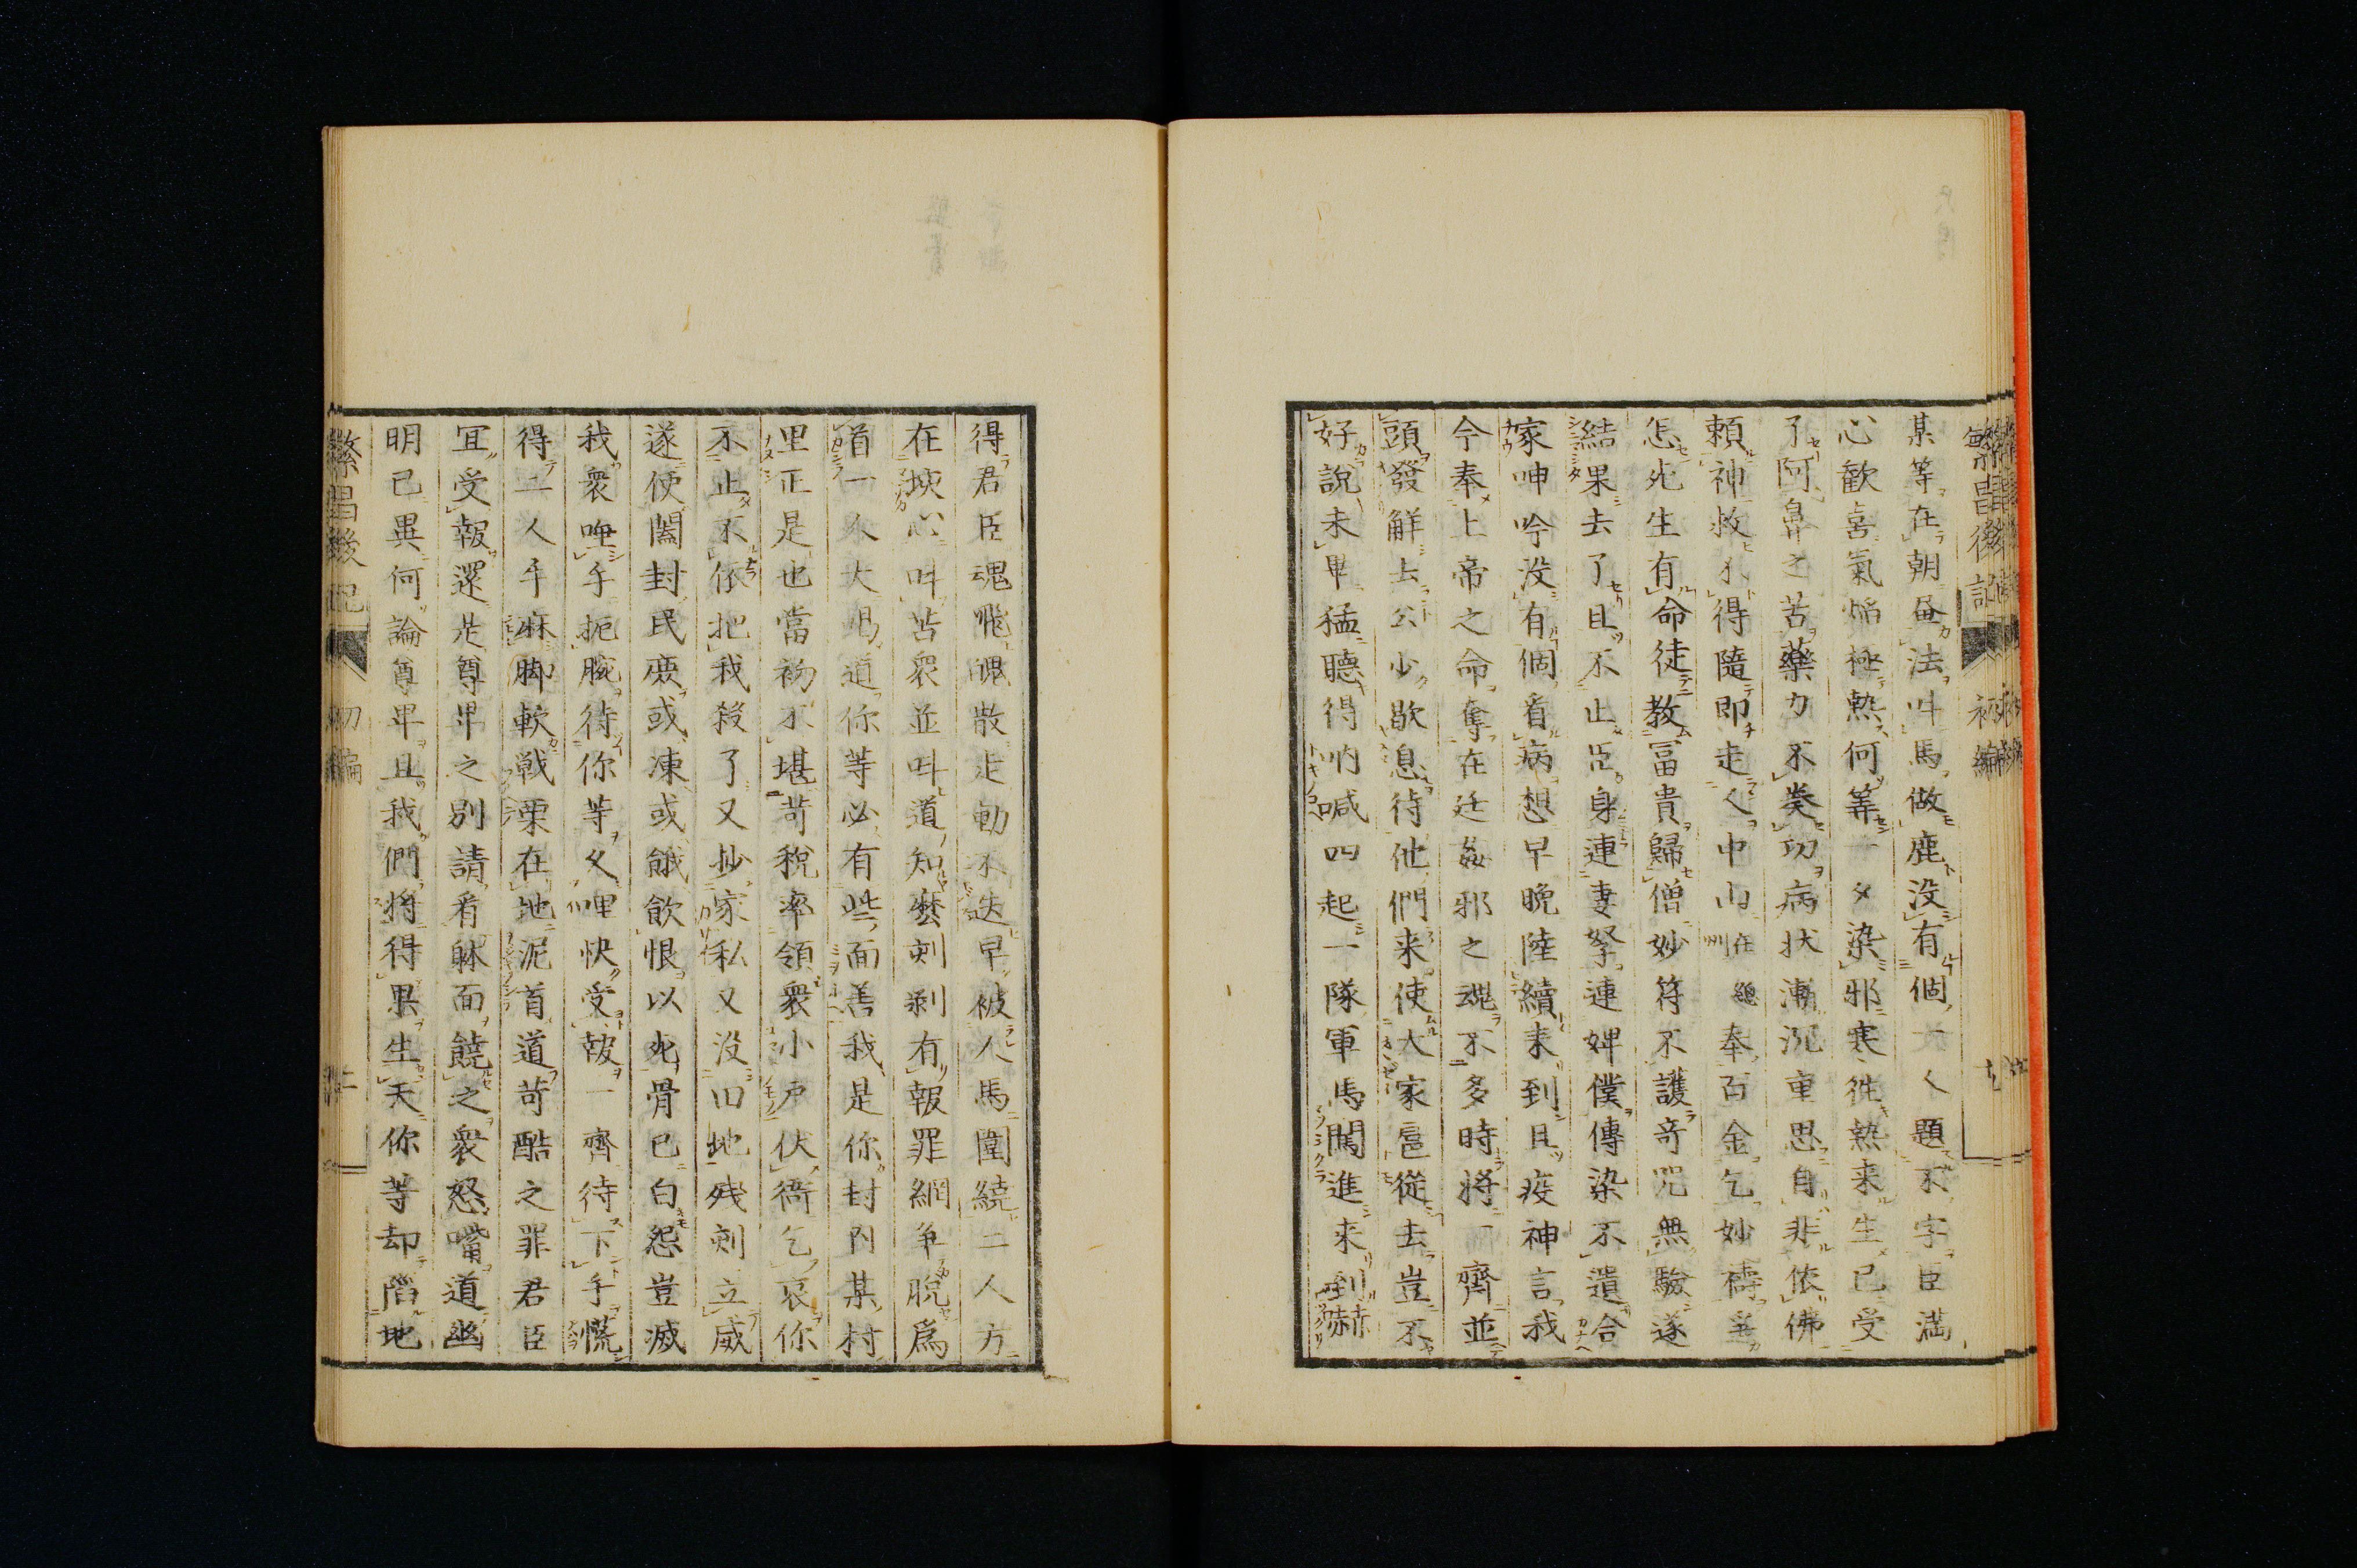 繁昌後記
初編
某等在朝毎法叫馬做鹿没有個一人題不字臣満
心歓喜氣焔極熱何等一夕染邪寒徃熱来生已受
了阿鼻之苦藥力不奏功病状漸沉重思自非依佛
頼神救不得隨即走人中山在總州奉百金乞妙禱爭
怎死生有命徒教冨貴歸僧妙符不護奇咒無驗遂
結果去了且不止臣身連妻孥連婢僕傳染不遺合
家呻吟没有個看病想早晩陸續来到且疫神言我
今奉上帝之命奪在廷姦邪之魂不多時将一齊並
頭發觧去公少歇息待他們来使大家扈從去豈不
好説未畢猛聽得吶喊四起一隊軍馬闖進来到赫
得君臣魂飛魄散走動不迭早被人馬圍繞二人方
在堗心叫苦衆並叫道知麼剣剃有報罪網争脱爲
首一人大喝道你等必有些面善我是你封内某村
里正是也當初不堪苛税率領衆小戸伏衙乞哀你
不止不依把我殺了又抄家私又没田地残剣立威
遂使闔封民庶或凍或餓飲恨以死骨已白怨豈滅
我衆唾手扼腕待你等久哩快受報一齊待下手慌
得二人手麻脚軟戦栗在地泥首道苛酷之罪君臣
冝受報還是尊卑之別請看躰面饒之衆怒嘴道幽
明已異何論尊卑且我們将得果生天你等却陷地
繁昌後記
初編
二